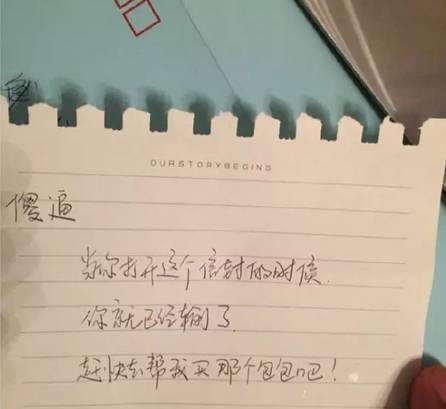 OURSTORYBEGINS
傻逼
当你打开这个信封的时候
你就已经输了
赶快去帮我买那个包包吧！